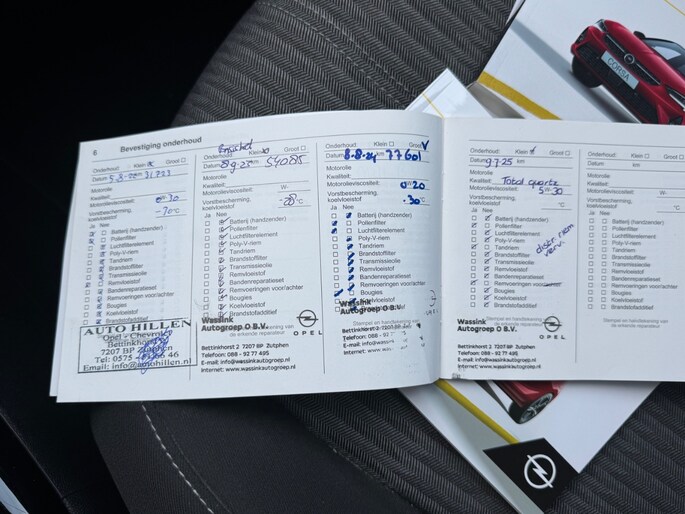 6
Bevestiging onderhoud
Onderhoud: Klein Groot
Datum 5.8.20 km 31223
Motorolie
Kwaliteit
Motorolieviscositeit: 0W30
Vorstbescherming,
koelvloeistof -70°C
Ja Nee
Batterij (handzender)
Pollenfilter
Luchtfilterelement
Poly-V-riem
Tandriem
Brandstoffilter
Transmissieolie
Remvloeistof
Bandenreparatieset
Remvoeringen voor/achter
Bougies
Koelvloeistof
Brandstofadditief
AUTO HILLEN
Opel - Chevrolet
Bettinkhorst
7207 BP Zutphen
Tel: 0575
Email: info@autohillen.nl
Onderhoud: Klein Groot
Datum km 54085
Motorolie
Kwaliteit: W-
Motorolieviscositeit:
Vorstbescherming,
koelvloeistof -28°C
Ja Nee
Batterij (handzender)
Pollenfilter
Luchtfilterelement
Poly-V-riem
Tandriem
Brandstoffilter
Transmissieolie
Remvloeistof
Bandenreparatieset
Remvoeringen voor/achter
Bougies
Koelvloeistof
Brandstofadditief
Wassink
Autogroep O B.V.
OPEL
Bettinkhorst 2 7207 BP Zutphen
Telefoon: 088 - 92 77 495
E-mail: info@wassinkautogroep.nl
Internet: www.wassinkautogroep.nl
Onderhoud: Klein Groot
Datum 8-8-24 km 77601
Motorolie
Kwaliteit:
Motorolieviscositeit: 0W20
Vorstbescherming,
koelvloeistof -30°C
Ja Nee
Batterij (handzender)
Pollenfilter
Luchtfilterelement
Poly-V-riem
Tandriem
Brandstoffilter
Transmissieolie
Remvloeistof
Bandenreparatieset
Remvoeringen voor/achter
Bougies
Koelvloeistof
Wassink
Autogroep O B.V.
Bettinkhorst 2 7207 BP
Telefoon: 088 - 92 77
E-mail: info@wassink
Internet: www.wassin
Onderhoud: Klein Groot
Datum 9-7-25 km
Motorolie
Kwaliteit: Total quartz
Motorolieviscositeit: 5W-30
Vorstbescherming,
koelvloeistof °C
Ja Nee
Batterij (handzender)
Pollenfilter
Luchtfilterelement
Poly-V-riem
Tandriem
distr. riem
verv.
Brandstoffilter
Transmissieolie
Remvloeistof
Bandenreparatieset
Remvoeringen voor/achter
Bougies
Koelvloeistof
Brandstofadditief
Stempel en handtekening van
de erkende reparateur
Wassink
Autogroep O B.V.
OPEL
Bettinkhorst 2 7207 BP Zutphen
Telefoon: 088 - 92 77 495
E-mail: info@wassinkautogroep.nl
Internet: www.wassinkautogroep.nl
Onderhoud: Klein Groot
Datum km
Motorolie
Kwaliteit:
Motorolieviscositeit: W-
Vorstbescherming,
koelvloeistof °C
Ja Nee
Batterij (handzender)
Pollenfilter
Luchtfilterelement
Poly-V-riem
Tandriem
Brandstoffilter
Transmissieolie
Remvloeistof
Bandenreparatieset
Remvoeringen voor/achter
Bougies
Koelvloeistof
Brandstofadditief
Stempel en handtekening van
de erkende reparateur
CORSA